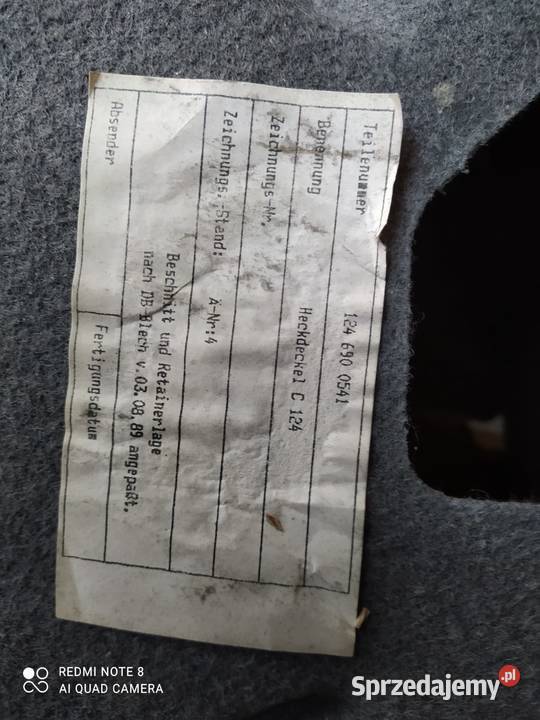 Teilenummer 124 690 0541
Benennung Heckdeckel C 124
Zeichnungs-Nr.
Zeichnungs.-Stand: Ä-Nr:4
Beschnitt und Retainerlage
nach DB-Blech v.03.08.89 angepaßt.
Absender Fertigungsdatum
REDMI NOTE 8
AI QUAD CAMERA
Sprzedajemy.pl